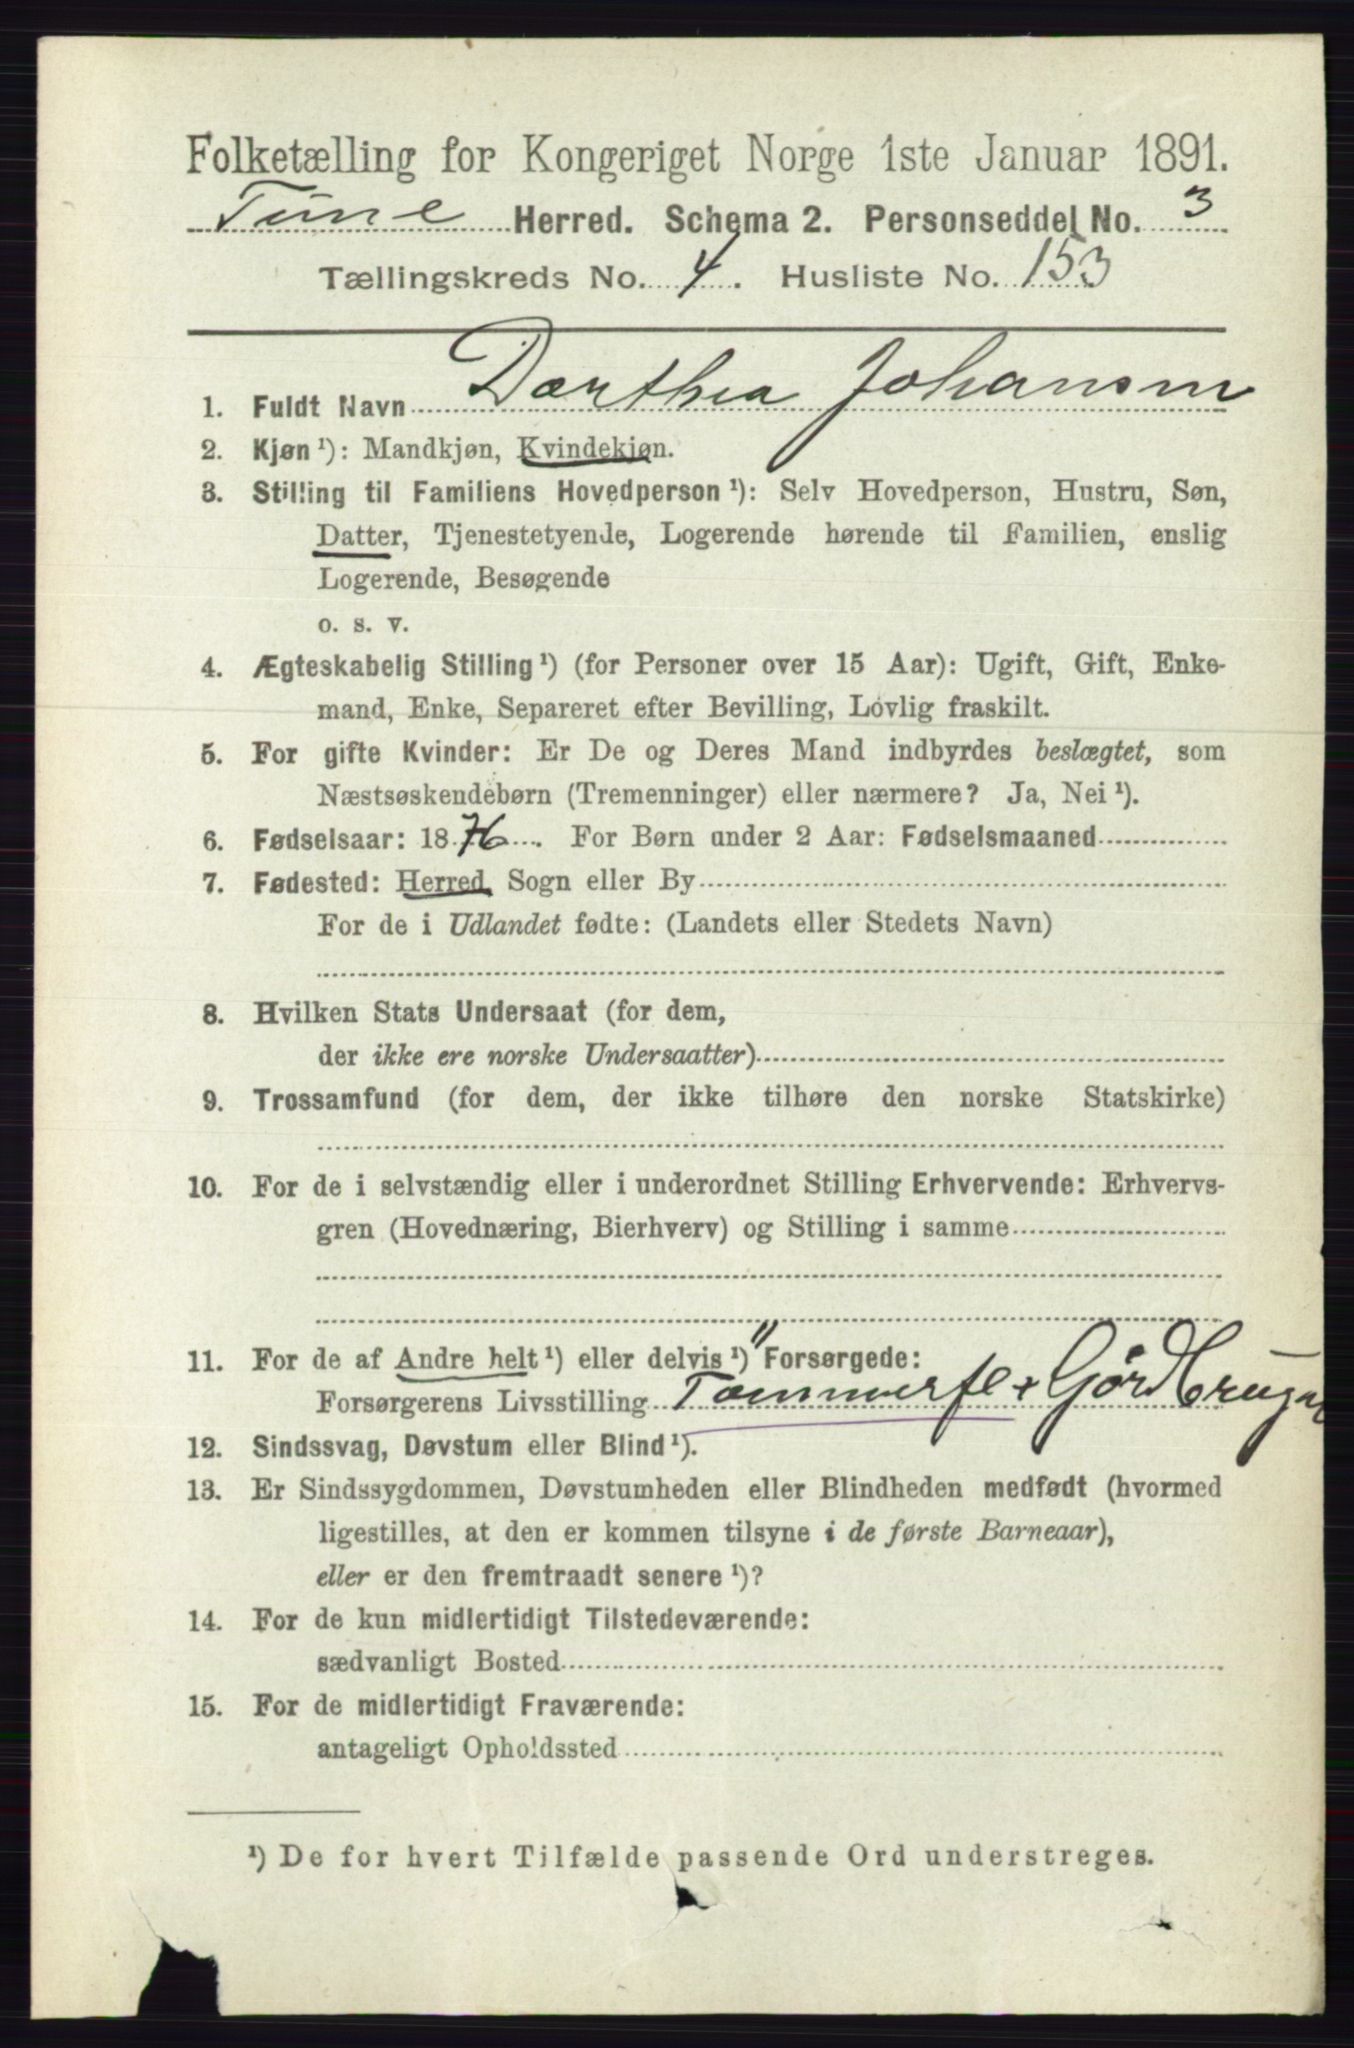 Folketælling for Kongeriget Norge 1ste Januar 1891.
Tune Herred. Schema 2. Personseddel No. 3
Tællingskreds No. 4. Husliste No. 153
1. Fuldt Navn Dorthea Johansen
2. Kjøn ¹): Mandkjøn, Kvindekjøn.
3. Stilling til Familiens Hovedperson ¹): Selv Hovedperson, Hustru, Søn,
Datter, Tjenestetyende, Logerende hørende til Familien, enslig
Logerende, Besøgende
o. s. v.
4. Ægteskabelig Stilling ¹) (for Personer over 15 Aar): Ugift, Gift, Enke-
mand, Enke, Separeret efter Bevilling, Lovlig fraskilt.
5. For gifte Kvinder: Er De og Deres Mand indbyrdes beslægtet, som
Næstsøskendebørn (Tremenninger) eller nærmere? Ja, Nei ¹).
6. Fødselsaar: 1876. For Børn under 2 Aar: Fødselsmaaned
7. Fødested: Herred, Sogn eller By
For de i Udlandet fødte: (Landets eller Stedets Navn)
8. Hvilken Stats Undersaat (for dem,
der ikke ere norske Undersaatter)
9. Trossamfund (for dem, der ikke tilhøre den norske Statskirke)
10. For de i selvstændig eller i underordnet Stilling Erhvervende: Erhvervs-
gren (Hovednæring, Bierhverv) og Stilling i samme
11. For de af Andre helt ¹) eller delvis ¹) Forsørgede:
Forsørgerens Livsstilling Tømmerfl + Gårdbruger
12. Sindssvag, Døvstum eller Blind ¹).
13. Er Sindssygdommen, Døvstumheden eller Blindheden medfødt (hvormed
ligestilles, at den er kommen tilsyne i de første Barneaar),
eller er den fremtraadt senere ¹)?
14. For de kun midlertidigt Tilstedeværende:
sædvanligt Bosted
15. For de midlertidigt Fraværende:
antageligt Opholdssted
¹) De for hvert Tilfælde passende Ord understreges.